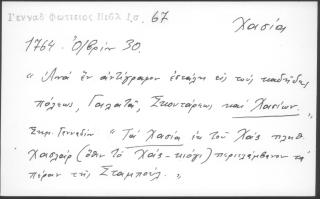 Γενναδ Φωτιειος Βιβλ Ισ. 67
Χασία
1764. Ὀ/βρίν 30.
" Ἀνὰ ἓν ἀντίγραφον ἐστάλη εἰς τοὺς καδῆδες
πόλεως, Γαλατᾶ, Σκουτάρεως καὶ Χασίων. "
Σημ. Γενναδίου " Τὰ Χασία ἐκ τοῦ Χὰς πληθ.
Χασλὰρ (ὅθεν τὸ Χάς-κιόγι) περιελάμβανον τὰ
πέραν τῆς Σταμπούλ. "